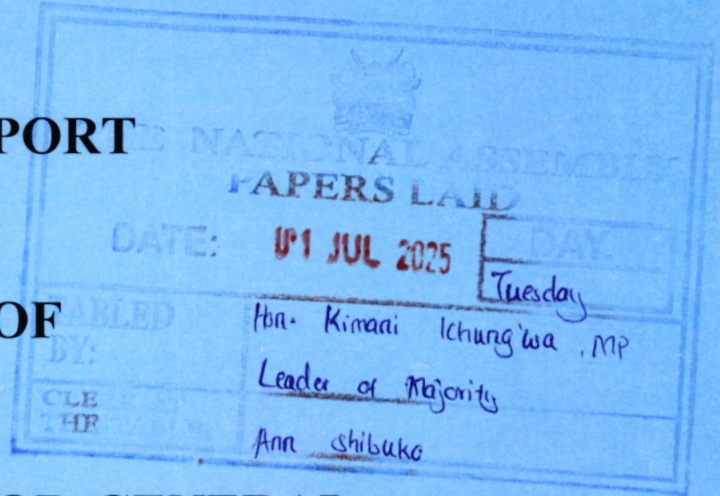 PORT
THE NATIONAL ASSEMBLY
PAPERS LAID
DATE: 01 JUL 2025 DAY.
Tuesday
OF
TABLED BY: Hon. Kimani Ichung'wa, MP
Leader of Majority
CLERK
THE TABLE: Ann Shibuko
OR GENERAL